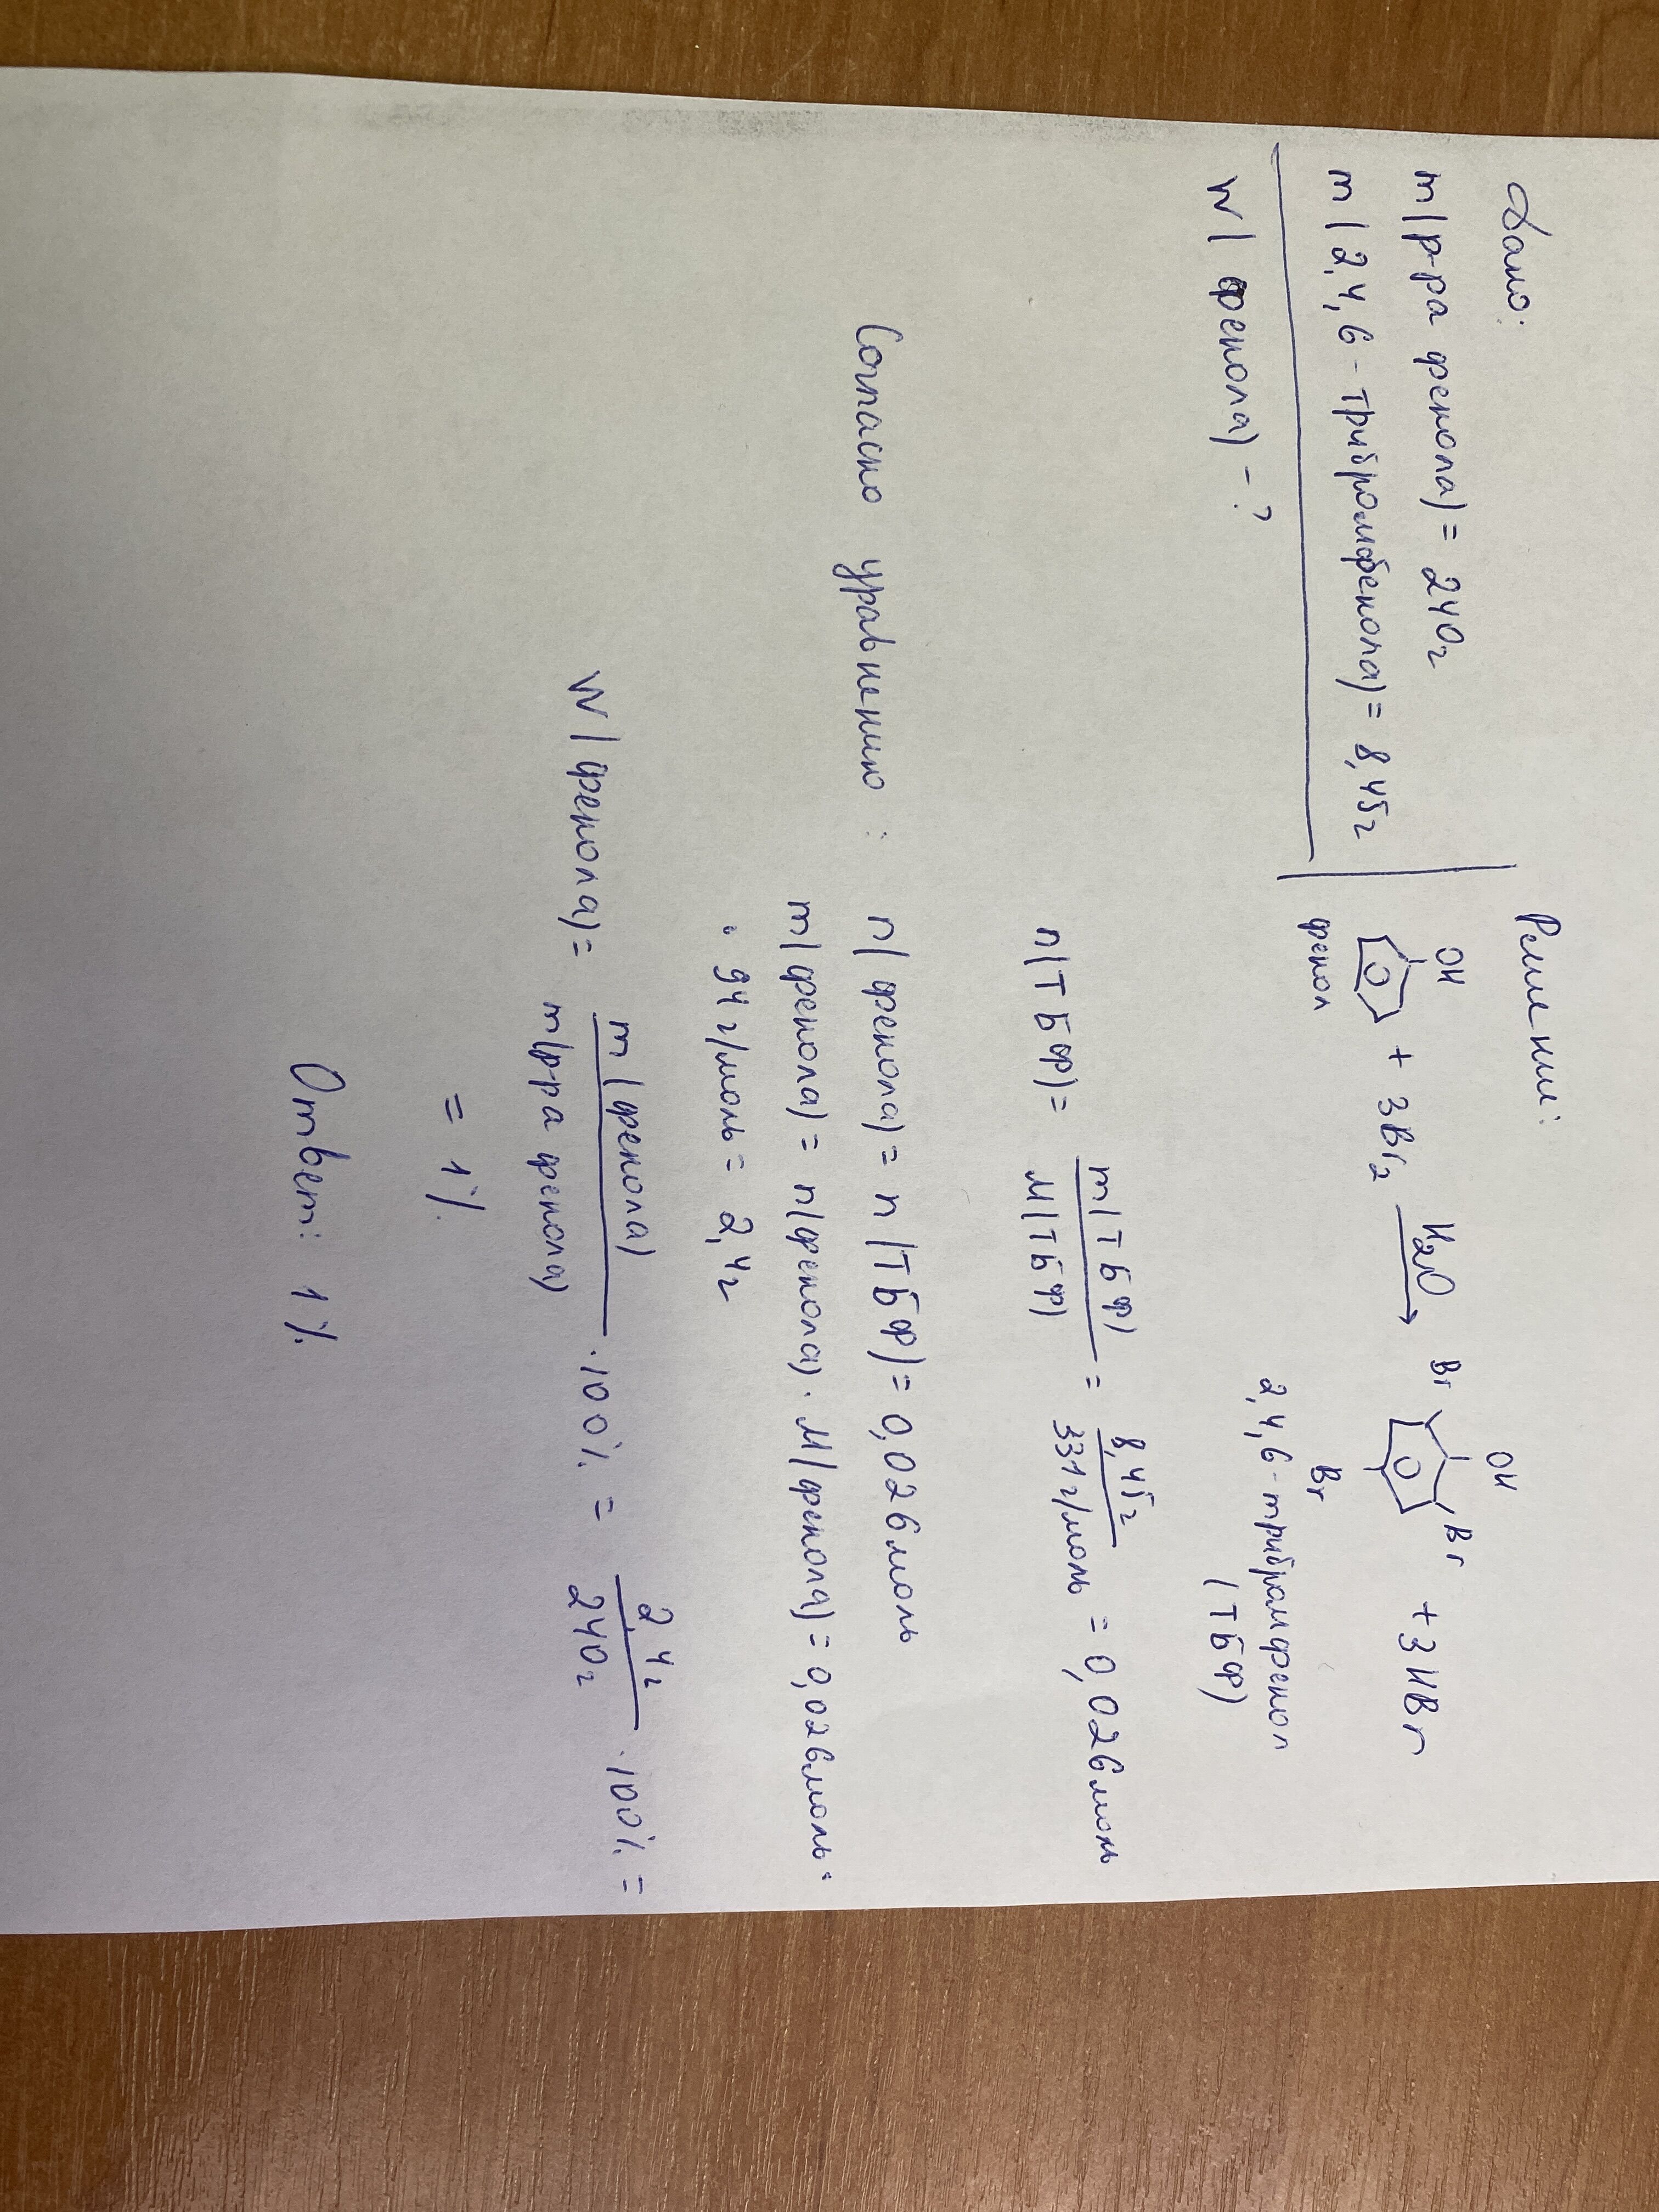 Дано:
m(р-ра фенола) = 240г
m(2,4,6-трибромфенола) = 8,45г
W(фенола) - ?
Решение:
OH
+ 3Br2 H2O → Br OH Br + 3HBr
Br
фенол
2,4,6-трибромфенол
(ТБФ)
n(ТБФ) = m(ТБФ) / M(ТБФ) = 8,45г / 331 г/моль = 0,026моль
Согласно уравнению: n(фенола) = n(ТБФ) = 0,026моль
m(фенола) = n(фенола) · M(фенола) = 0,026моль ·
· 94 г/моль = 2,4г
W(фенола) = m(фенола) / m(р-ра фенола) · 100% = 2,4г / 240г · 100% =
= 1%
Ответ: 1%